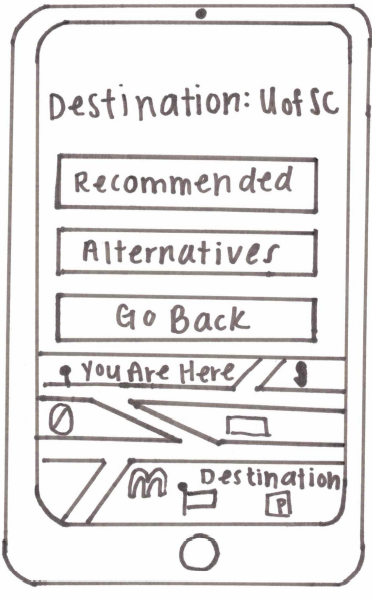 Destination: UofSC
Recommended
Alternatives
Go Back
You Are Here
Destination
P